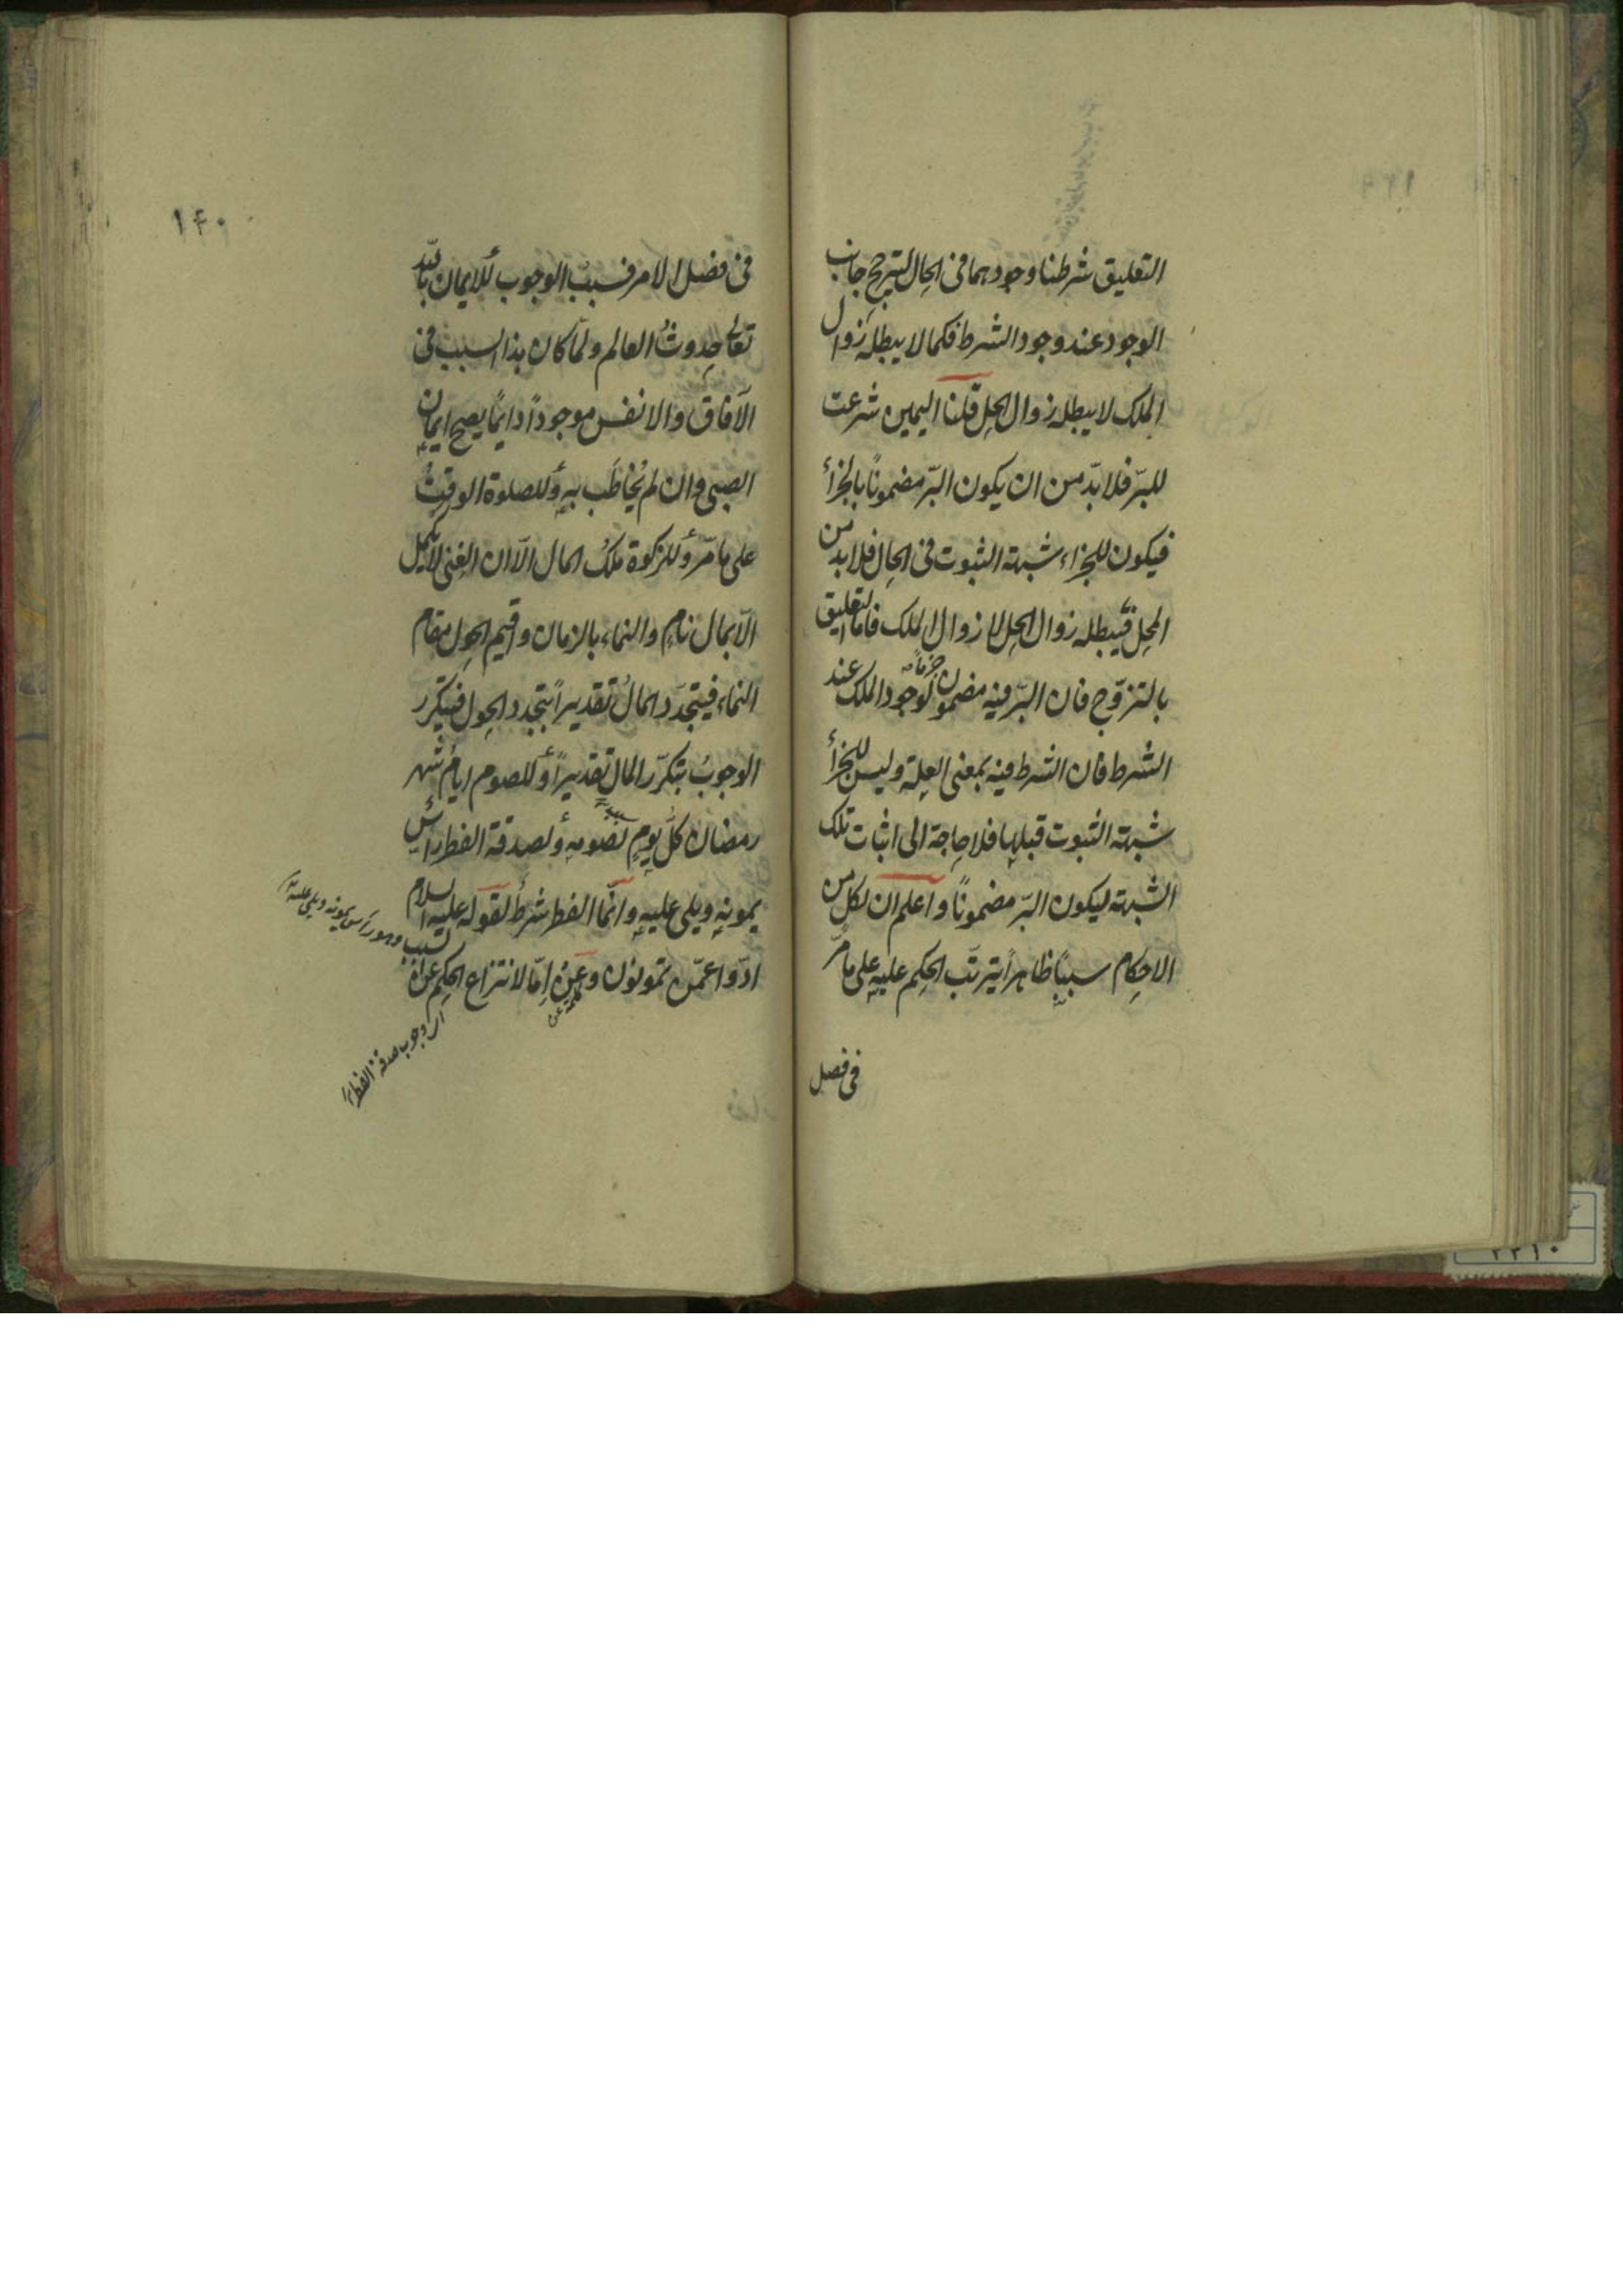 التعليق شرطنا وجودهما في الحال ليترجح جانب
الوجود عند وجود الشرط فكما لا يبطله زوال
الملك لا يبطله زوال الحل قلنا اليمين شرعت
للبرّ فلا بدّ من ان يكون البرّ مضموناً بالجزأ
فيكون للجزاء شبهة الثبوت في الحال فلا بد من
المحل فيبطله زوال الحل لا زوال الملك فاما التعليق
بالتزوّج فان البرّ فيه مضمون لوجود الملك عند
الشرط فان الشرط فيه بمعنى العلة وليس للجزأ
شبهة الثبوت قبلها فلا حاجة الى اثبات تلك
الشبهة ليكون البرّ مضموناً واعلم ان لكل من
الاحكام سبباً ظاهراً يترتّب الحكم عليه على مامرّ
في فصل
١٤٠
في فصل الامر فسببُ الوجوب للايمان باللّه
تعالى حدوثُ العالم ولمّا كان هذا السبب في
الآفاق والانفس موجوداً دايمًا يصح ايمان
الصبي وان لم يُخاطَب به وللصلوة الوقتُ
على مامرّ وللزكوة ملكُ المال الّا ان الغنى لا يكمل
الّا بمال نامٍ والنماء بالزمان واقيم الحول مقام
النماء فيتجدّد المالُ تقديراً بتجدد الحول فيتكرر
الوجوبُ بتكرّر المال تقديراً وللصوم ايامُ شهر
رمضان كلُّ يومٍ لصومه ولصدقة الفطر رأسٌ
يمونه ويلي عليه وانّما الفطر شرط لقوله عليه السلام
ادّوا عمّن تمونون وعن اِمّا لانتزاع الحكم عن
السبب وهو رأس يمونه ويلي عليه
اى وجوب صدقة الفطر
كلمة عن